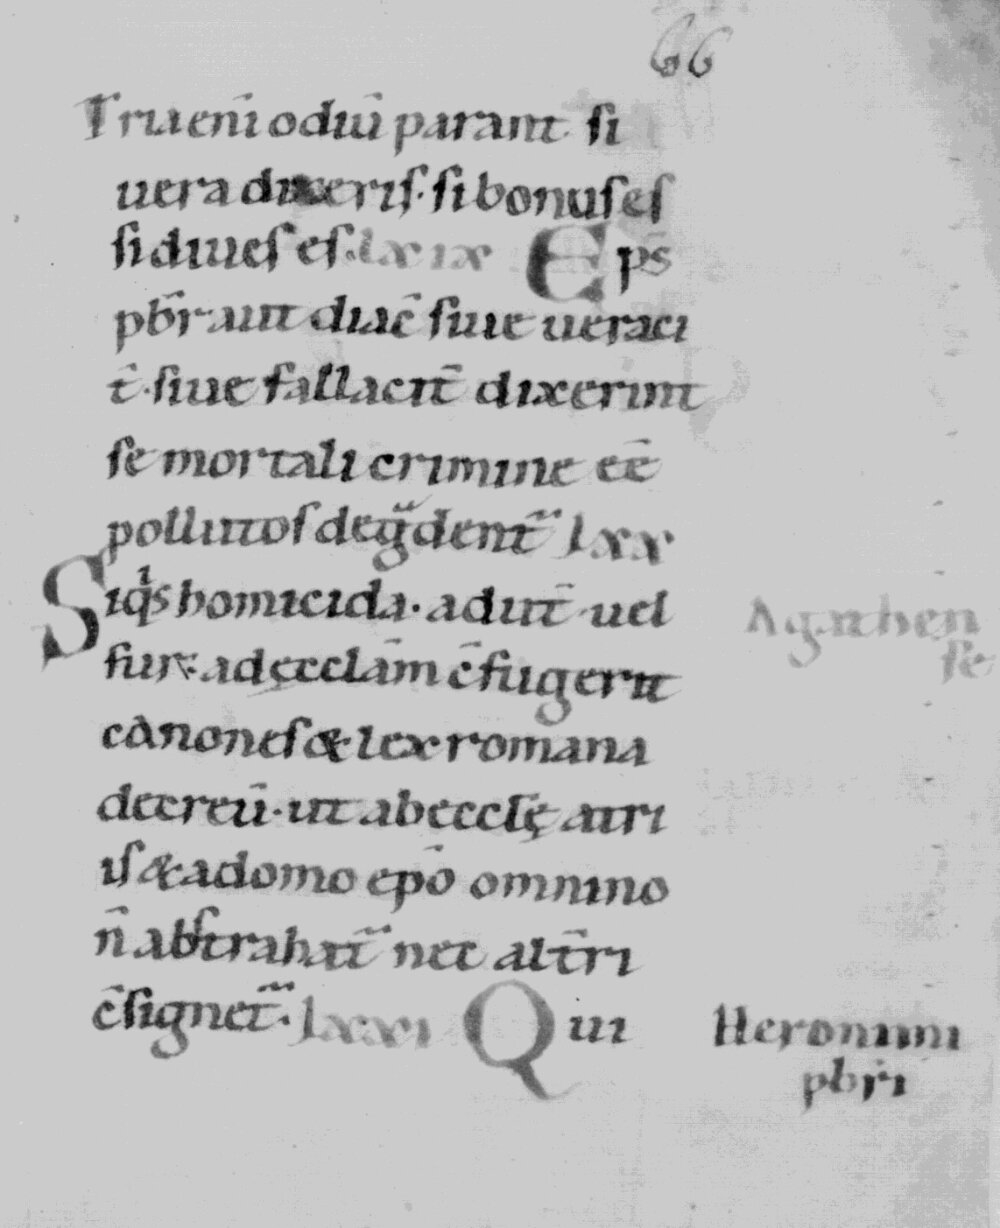 66
Tria eni̅ odiu̅ parant si
uera dixeris · si bonus es
si diues es · lxix Ep̅s
pb̅r aut diac̅ siue ueraci
t̅ · siue fallacit̅ dixerint
se mortali crimine ee̅
pollutos deg̅dent̅ lxx
Siqͥs homicida · adult̅ uel
fur · ad ęccl̅am c̅fugerit
canones & lex romana
decreu̅ · ut ab eccl̅ę atri
is & a domo ep̅o omnino
n̅ abstrahat̅ nec alt̅ri
c̅signet̅ · lxxi Qui
Agathen
se
Heronimi
pb̅ri